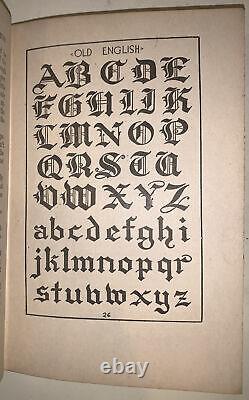 «OLD ENGLISH»
A B C D E
F G H I J K
L M N O P
Q R S T U
V W X Y Z
a b c d e f g h i
j k l m n o p q r
s t u v w x y z
26